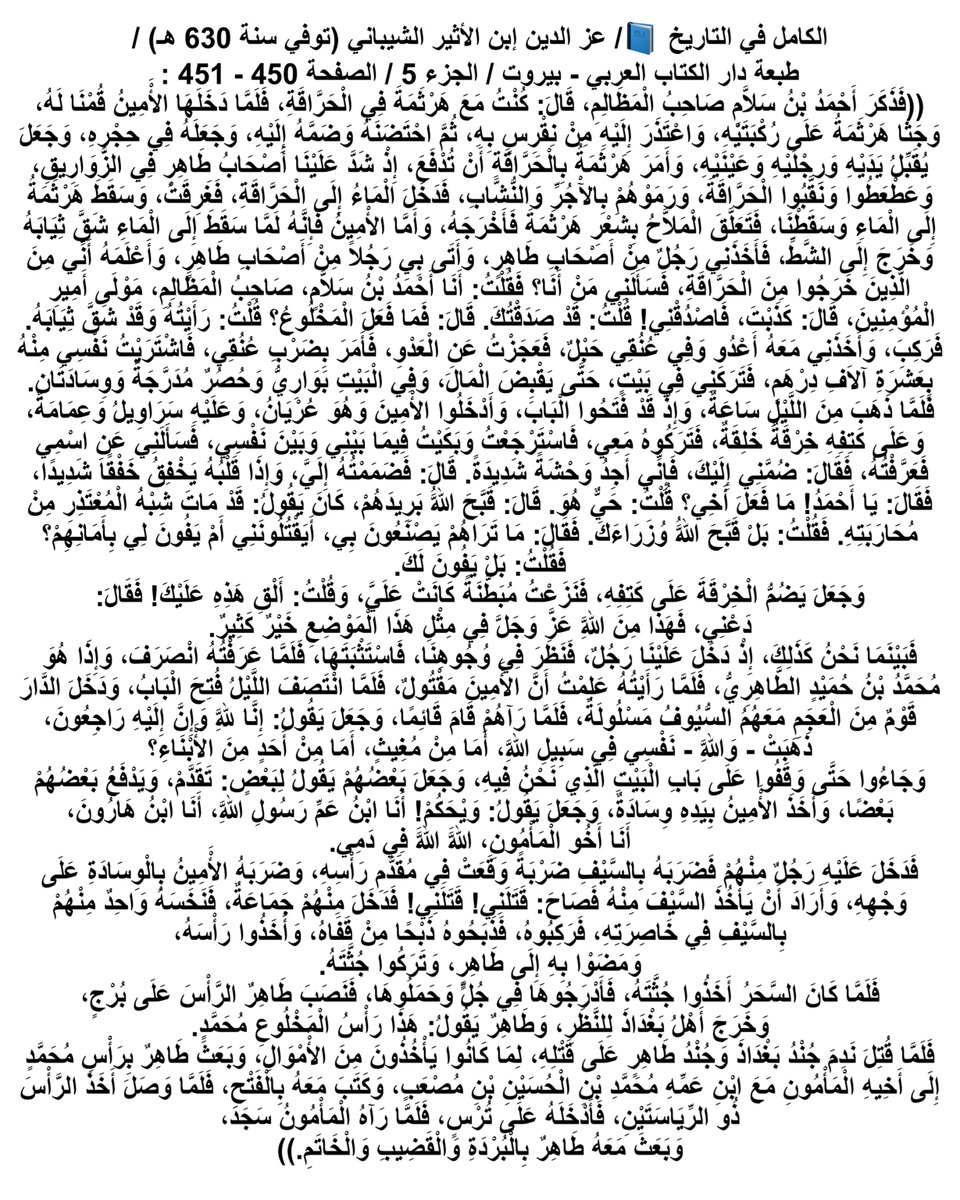 الكامل في التاريخ 📘/ عز الدين إبن الأثير الشيباني (توفي سنة 630 هـ) /
طبعة دار الكتاب العربي - بيروت / الجزء 5 / الصفحة 450 - 451 :
((فَذَكَرَ أَحْمَدُ بْنُ سَلاَّم صَاحِبُ الْمَظَالِمِ، قَالَ: كُنْتُ مَعَ هَرْثَمَةَ فِي الْحَرَّاقَةِ، فَلَمَّا دَخَلَهَا الأَمِينُ قُمْنَا لَهُ،
وَجَثَا هَرْثَمَةُ عَلَى رُكْبَتَيْهِ، وَاعْتَذَرَ إِلَيْهِ مِنْ نِقْرِسٍ بِهِ، ثُمَّ احْتَضَنَهُ وَضَمَّهُ إِلَيْهِ، وَجَعَلَهُ فِي حِجْرِهِ، وَجَعَلَ
يُقَبِّلُ يَدَيْهِ وَرِجْلَيْهِ وَعَيْنَيْهِ، وَأَمَرَ هَرْثَمَةُ بِالْحَرَّاقَةِ أَنْ تُدْفَعَ، إِذْ شَدَّ عَلَيْنَا أَصْحَابُ طَاهِرٍ فِي الزَّوَارِيقِ،
وَعَطْعَطُوا وَنَقَبُوا الْحَرَّاقَةَ، وَرَمَوْهُمْ بِالآجُرِّ وَالنُّشَّابِ، فَدَخَلَ الْمَاءُ إِلَى الْحَرَّاقَةِ، فَغَرِقَتْ، وَسَقَطَ هَرْثَمَةُ
إِلَى الْمَاءِ وَسَقَطْنَا، فَتَعَلَّقَ الْمَلاَّحُ بِشَعْرِ هَرْثَمَةَ فَأَخْرَجَهُ، وَأَمَّا الأَمِينُ فَإِنَّهُ لَمَّا سَقَطَ إِلَى الْمَاءِ شَقَّ ثِيَابَهُ
وَخَرَجَ إِلَى الشَّطِّ، فَأَخَذَنِي رَجُلٌ مِنْ أَصْحَابِ طَاهِرٍ، وَأَتَى بِي رَجُلاً مِنْ أَصْحَابِ طَاهِرٍ، وَأَعْلَمَهُ أَنِّي مِنَ
الَّذِينَ خَرَجُوا مِنَ الْحَرَّاقَةِ، فَسَأَلَنِي مَنْ أَنَا؟ فَقُلْتُ: أَنَا أَحْمَدُ بْنُ سَلاَّم، صَاحِبُ الْمَظَالِمِ، مَوْلَى أَمِيرِ
الْمُؤْمِنِينَ، قَالَ: كَذَبْتَ، فَاصْدُقْنِي! قُلْتُ: قَدْ صَدَقْتُكَ. قَالَ: فَمَا فَعَلَ الْمَخْلُوعُ؟ قُلْتُ: رَأَيْتُهُ وَقَدْ شَقَّ ثِيَابَهُ.
فَرَكِبَ، وَأَخَذَنِي مَعَهُ أَعْدُو وَفِي عُنُقِي حَبْلٌ، فَعَجَزْتُ عَنِ الْعَدْوِ، فَأَمَرَ بِضَرْبِ عُنُقِي، فَاشْتَرَيْتُ نَفْسِي مِنْهُ
بِعَشَرَةِ آلاَفِ دِرْهَمٍ، فَتَرَكَنِي فِي بَيْتٍ، حَتَّى يَقْبِضَ الْمَالَ، وَفِي الْبَيْتِ بَوَارِيُّ وَحُصُرٌ مُدَرَّجَةٌ وَوِسَادَتَانِ.
فَلَمَّا ذَهَبَ مِنَ اللَّيْلِ سَاعَةٌ، وَإِذْ قَدْ فَتَحُوا الْبَابَ، وَأَدْخَلُوا الأَمِينَ وَهُوَ عُرْيَانُ، وَعَلَيْهِ سَرَاوِيلُ وَعِمَامَةٌ،
وَعَلَى كَتِفِهِ خِرْقَةٌ خَلِقَةٌ، فَتَرَكُوهُ مَعِي، فَاسْتَرْجَعْتُ وَبَكَيْتُ فِيمَا بَيْنِي وَبَيْنَ نَفْسِي، فَسَأَلَنِي عَنِ اسْمِي
فَعَرَّفْتُهُ، فَقَالَ: ضُمَّنِي إِلَيْكَ، فَإِنِّي أَجِدُ وَحْشَةً شَدِيدَةً. قَالَ: فَضَمَمْتُهُ إِلَيَّ، وَإِذَا قَلْبُهُ يَخْفِقُ خَفْقًا شَدِيدًا،
فَقَالَ: يَا أَحْمَدُ! مَا فَعَلَ أَخِي؟ قُلْتُ: حَيٌّ هُوَ. قَالَ: قَبَّحَ اللهُ بَرِيدَهُمْ، كَانَ يَقُولُ: قَدْ مَاتَ شِبْهُ الْمُعْتَذِرِ مِنْ
مُحَارَبَتِهِ. فَقُلْتُ: بَلْ قَبَّحَ اللهُ وُزَرَاءَكَ. فَقَالَ: مَا تَرَاهُمْ يَصْنَعُونَ بِي، أَيَقْتُلُونَنِي أَمْ يَفُونَ لِي بِأَمَانِهِمْ؟
فَقُلْتُ: بَلْ يَفُونَ لَكَ.
وَجَعَلَ يَضُمُّ الْخِرْقَةَ عَلَى كَتِفِهِ، فَنَزَعْتُ مُبَطَّنَةً كَانَتْ عَلَيَّ، وَقُلْتُ: أَلْقِ هَذِهِ عَلَيْكَ! فَقَالَ:
دَعْنِي، فَهَذَا مِنَ اللهِ عَزَّ وَجَلَّ فِي مِثْلِ هَذَا الْمَوْضِعِ خَيْرٌ كَثِيرٌ.
فَبَيْنَمَا نَحْنُ كَذَلِكَ، إِذْ دَخَلَ عَلَيْنَا رَجُلٌ، فَنَظَرَ فِي وُجُوهِنَا، فَاسْتَثْبَتَهَا، فَلَمَّا عَرَفْتُهُ انْصَرَفَ، وَإِذَا هُوَ
مُحَمَّدُ بْنُ حُمَيْدٍ الطَّاهِرِيُّ، فَلَمَّا رَأَيْتُهُ عَلِمْتُ أَنَّ الأَمِينَ مَقْتُولٌ، فَلَمَّا انْتَصَفَ اللَّيْلُ فُتِحَ الْبَابُ، وَدَخَلَ الدَّارَ
قَوْمٌ مِنَ الْعَجَمِ مَعَهُمُ السُّيُوفُ مَسْلُولَةً، فَلَمَّا رَآهُمْ قَامَ قَائِمًا، وَجَعَلَ يَقُولُ: إِنَّا لِلَّهِ وَإِنَّ إِلَيْهِ رَاجِعُونَ،
ذَهَبَتْ - وَاللهِ - نَفْسِي فِي سَبِيلِ اللهِ، أَمَا مِنْ مُغِيثٍ، أَمَا مِنْ أَحَدٍ مِنَ الأَبْنَاءِ؟
وَجَاءُوا حَتَّى وَقَفُوا عَلَى بَابِ الْبَيْتِ الَّذِي نَحْنُ فِيهِ، وَجَعَلَ بَعْضُهُمْ يَقُولُ لِبَعْضٍ: تَقَدَّمْ، وَيَدْفَعُ بَعْضُهُمْ
بَعْضًا، وَأَخَذَ الأَمِينُ بِيَدِهِ وِسَادَةً، وَجَعَلَ يَقُولُ: وَيْحَكُمْ! أَنَا ابْنُ عَمِّ رَسُولِ اللهِ، أَنَا ابْنُ هَارُونَ،
أَنَا أَخُو الْمَأْمُونِ، اللهَ اللهَ فِي دَمِي.
فَدَخَلَ عَلَيْهِ رَجُلٌ مِنْهُمْ فَضَرَبَهُ بِالسَّيْفِ ضَرْبَةً وَقَعَتْ فِي مُقَدَّمِ رَأْسِهِ، وَضَرَبَهُ الأَمِينُ بِالْوِسَادَةِ عَلَى
وَجْهِهِ، وَأَرَادَ أَنْ يَأْخُذَ السَّيْفَ مِنْهُ فَصَاحَ: قَتَلَنِي! قَتَلَنِي! فَدَخَلَ مِنْهُمْ جَمَاعَةٌ، فَنَخَسَهُ وَاحِدٌ مِنْهُمْ
بِالسَّيْفِ فِي خَاصِرَتِهِ، فَرَكِبُوهُ، فَذَبَحُوهُ ذَبْحًا مِنْ قَفَاهُ، وَأَخَذُوا رَأْسَهُ،
وَمَضَوْا بِهِ إِلَى طَاهِرٍ، وَتَرَكُوا جُثَّتَهُ.
فَلَمَّا كَانَ السَّحَرُ أَخَذُوا جُثَّتَهُ، فَأَدْرَجُوهَا فِي جُلٍّ وَحَمَلُوهَا، فَنَصَبَ طَاهِرٌ الرَّأْسَ عَلَى بُرْجٍ،
وَخَرَجَ أَهْلُ بَغْدَاذَ لِلنَّظَرِ، وَطَاهِرٌ يَقُولُ: هَذَا رَأْسُ الْمَخْلُوعِ مُحَمَّدٍ.
فَلَمَّا قُتِلَ نَدِمَ جُنْدُ بَغْدَاذَ وَجُنْدُ طَاهِرٍ عَلَى قَتْلِهِ، لِمَا كَانُوا يَأْخُذُونَ مِنَ الأَمْوَالِ، وَبَعَثَ طَاهِرٌ بِرَأْسِ مُحَمَّدٍ
إِلَى أَخِيهِ الْمَأْمُونِ مَعَ ابْنِ عَمِّهِ مُحَمَّدِ بْنِ الْحُسَيْنِ بْنِ مُصْعَبٍ، وَكَتَبَ مَعَهُ بِالْفَتْحِ، فَلَمَّا وَصَلَ أَخَذَ الرَّأْسَ
ذُو الرِّيَاسَتَيْنِ، فَأَدْخَلَهُ عَلَى تُرْسٍ، فَلَمَّا رَآهُ الْمَأْمُونُ سَجَدَ،
وَبَعَثَ مَعَهُ طَاهِرٌ بِالْبُرْدَةِ وَالْقَضِيبِ وَالْخَاتَمِ.))